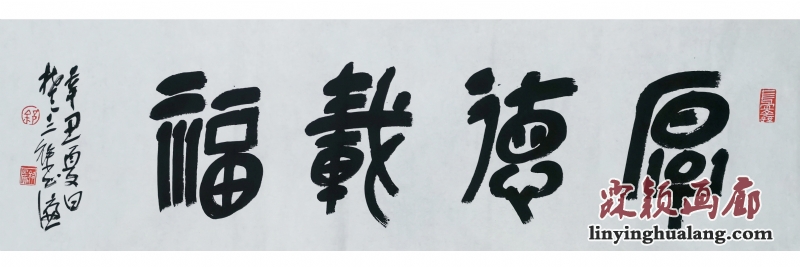 厚德載福
辛丑夏日
霖颖画廊
linyinghualang.com